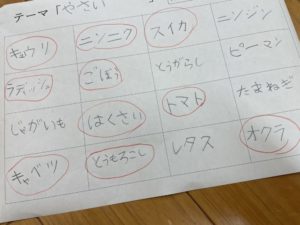 テーマ「やさい」
キュウリ ニンニク スイカ ニンジン
ラディッシュ ごぼう とうがらし ピーマン
じゃがいも はくさい トマト たまねぎ
キャベツ とうもろこし レタス オクラ